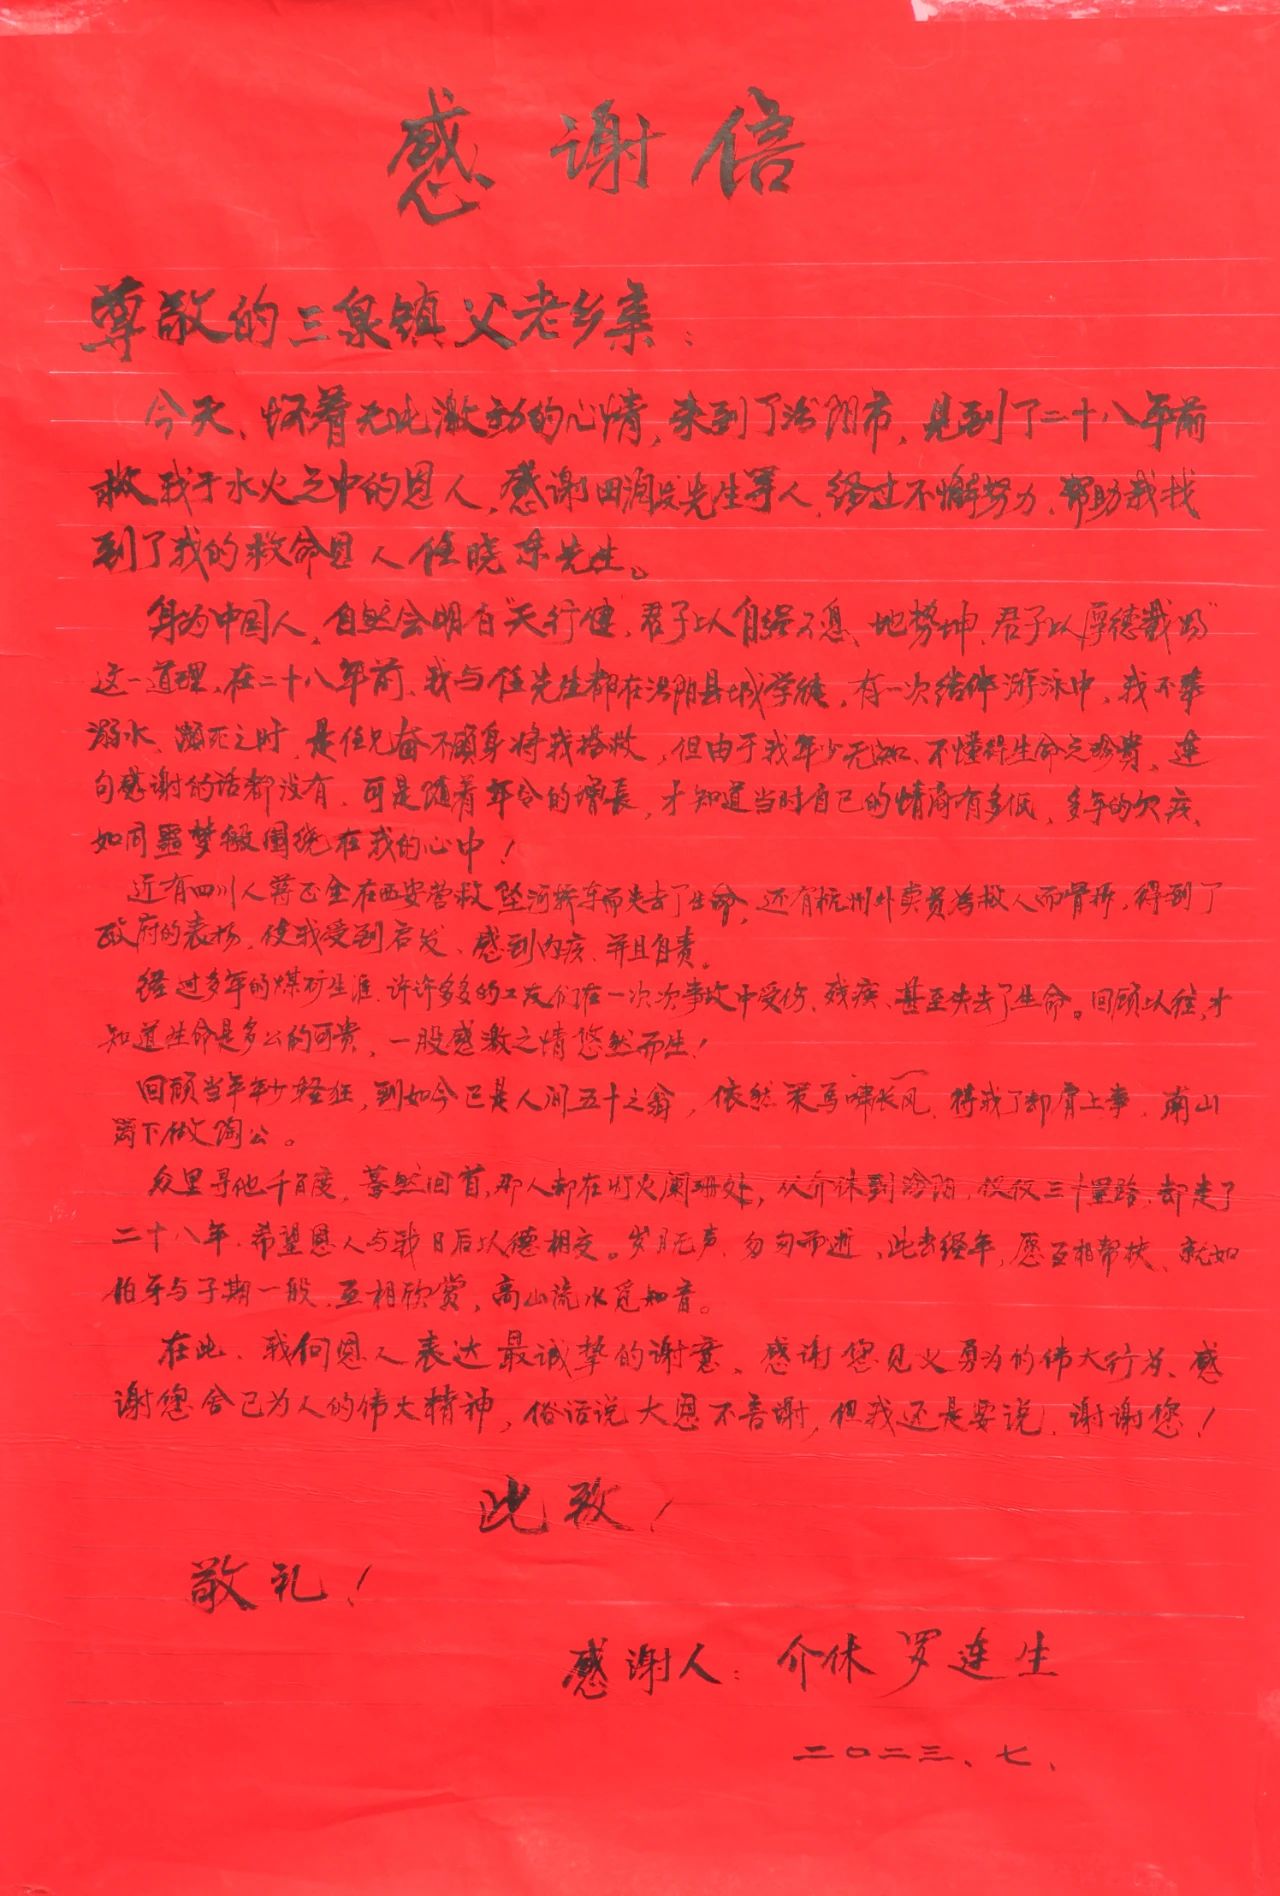 感谢信
尊敬的三泉镇父老乡亲：
今天、怀着无比激动的心情，来到了汾阳市，见到了二十八年前
救我于水火之中的恩人，感谢田润发先生等人，经过不懈努力、帮助我找
到了我的救命恩人任晓东先生。
身为中国人，自然会明白“天行健，君子以自强不息、地势坤，君子以厚德载物”
这一道理、在二十八年前、我与任先生都在汾阳县城学徒，有一次结伴游泳中，我不幸
溺水、濒死之时，是任兄奋不顾身将我搭救，但由于我年少无知、不懂得生命之珍贵、连
句感谢的话都没有，可是随着年令的增长，才知道当时自己的情商有多低，多年的欠疚、
如同噩梦般围绕在我的心中！
近有四川人蒋正全在西安营救坠河轿车而失去了生命，还有杭州外卖员为救人而骨折，得到了
政府的表扬，使我受到启发、感到内疚、并且自责。
经过多年的煤矿生涯，许许多多的工友们在一次次事故中受伤、残疾、甚至失去了生命。回顾以往，才
知道生命是多么的可贵，一股感激之情悠然而生！
回顾当年年少轻狂，到如今已是人间五十之翁，依然策马啸长风，待我了却肩上事，南山
篱下做陶公。
众里寻他千百度，蓦然回首，那人却在灯火阑珊处，从介休到汾阳，仅仅三十里路，却走了
二十八年，希望恩人与我日后以德相交。岁月无声，匆匆而逝、此去经年，愿互相帮扶、就如
伯牙与子期一般，互相欣赏，高山流水觅知音。
在此、我向恩人表达最诚挚的谢意、感谢您见义勇为的伟大行为、感
谢您舍己为人的伟大精神，俗话说大恩不言谢，但我还是要说，谢谢您！
此致！
敬礼！
感谢人：介休 罗连生
二〇二三、七、